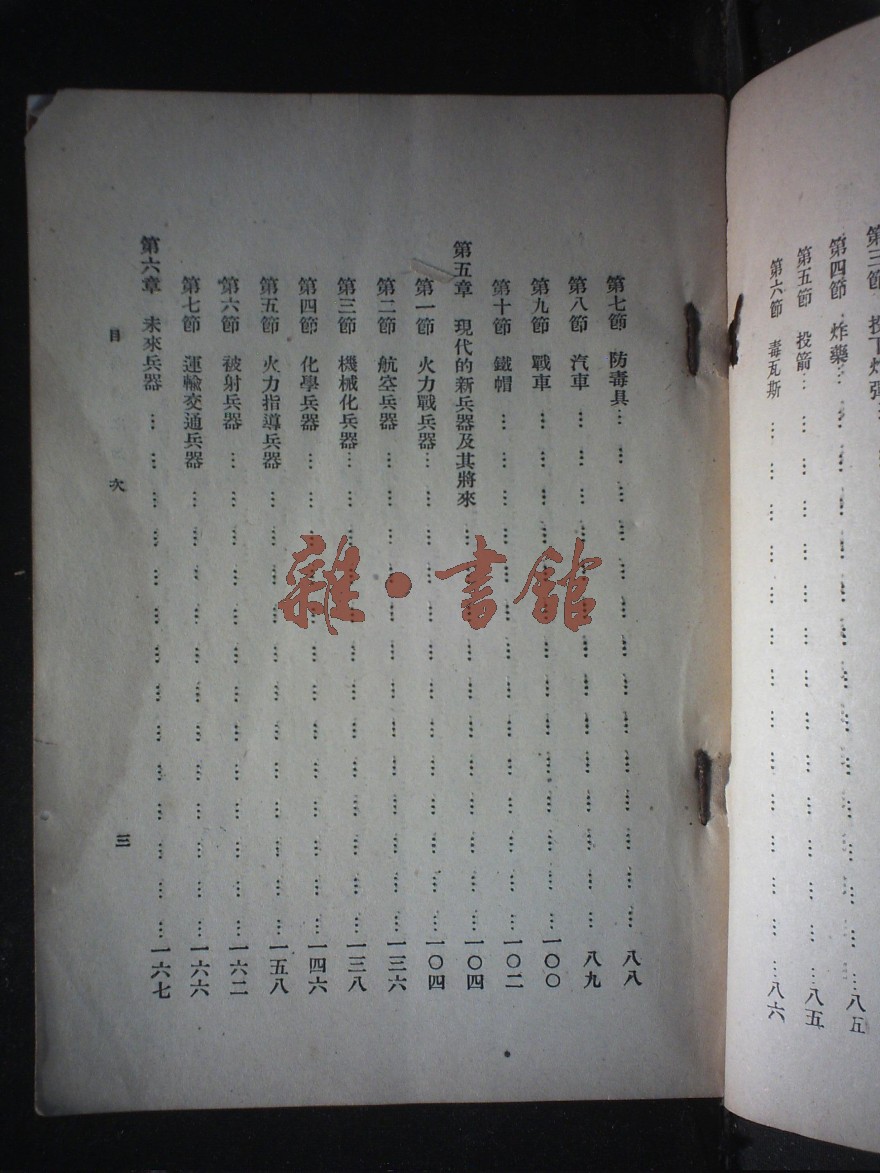 第三節 投下炸彈
第四節 炸藥⋯ ⋯八五
第五節 投箭⋯ ⋯八五
第六節 毒瓦斯 ⋯八六
第七節 防毒具⋯ ⋯八八
第八節 汽車 ⋯八九
第九節 戰車 ⋯一〇〇
第十節 鐵帽 ⋯一〇二
第五章 現代的新兵器及其將來 ⋯一〇四
第一節 火力戰兵器⋯ ⋯一〇四
第二節 航空兵器 ⋯一三六
第三節 機械化兵器⋯ ⋯一三八
第四節 化學兵器 ⋯一四六
第五節 火力指導兵器 ⋯一五八
第六節 被射兵器 ⋯一六二
第七節 運輸交通兵器 ⋯一六六
第六章 未來兵器 ⋯一六七
目次 三
雜·書館